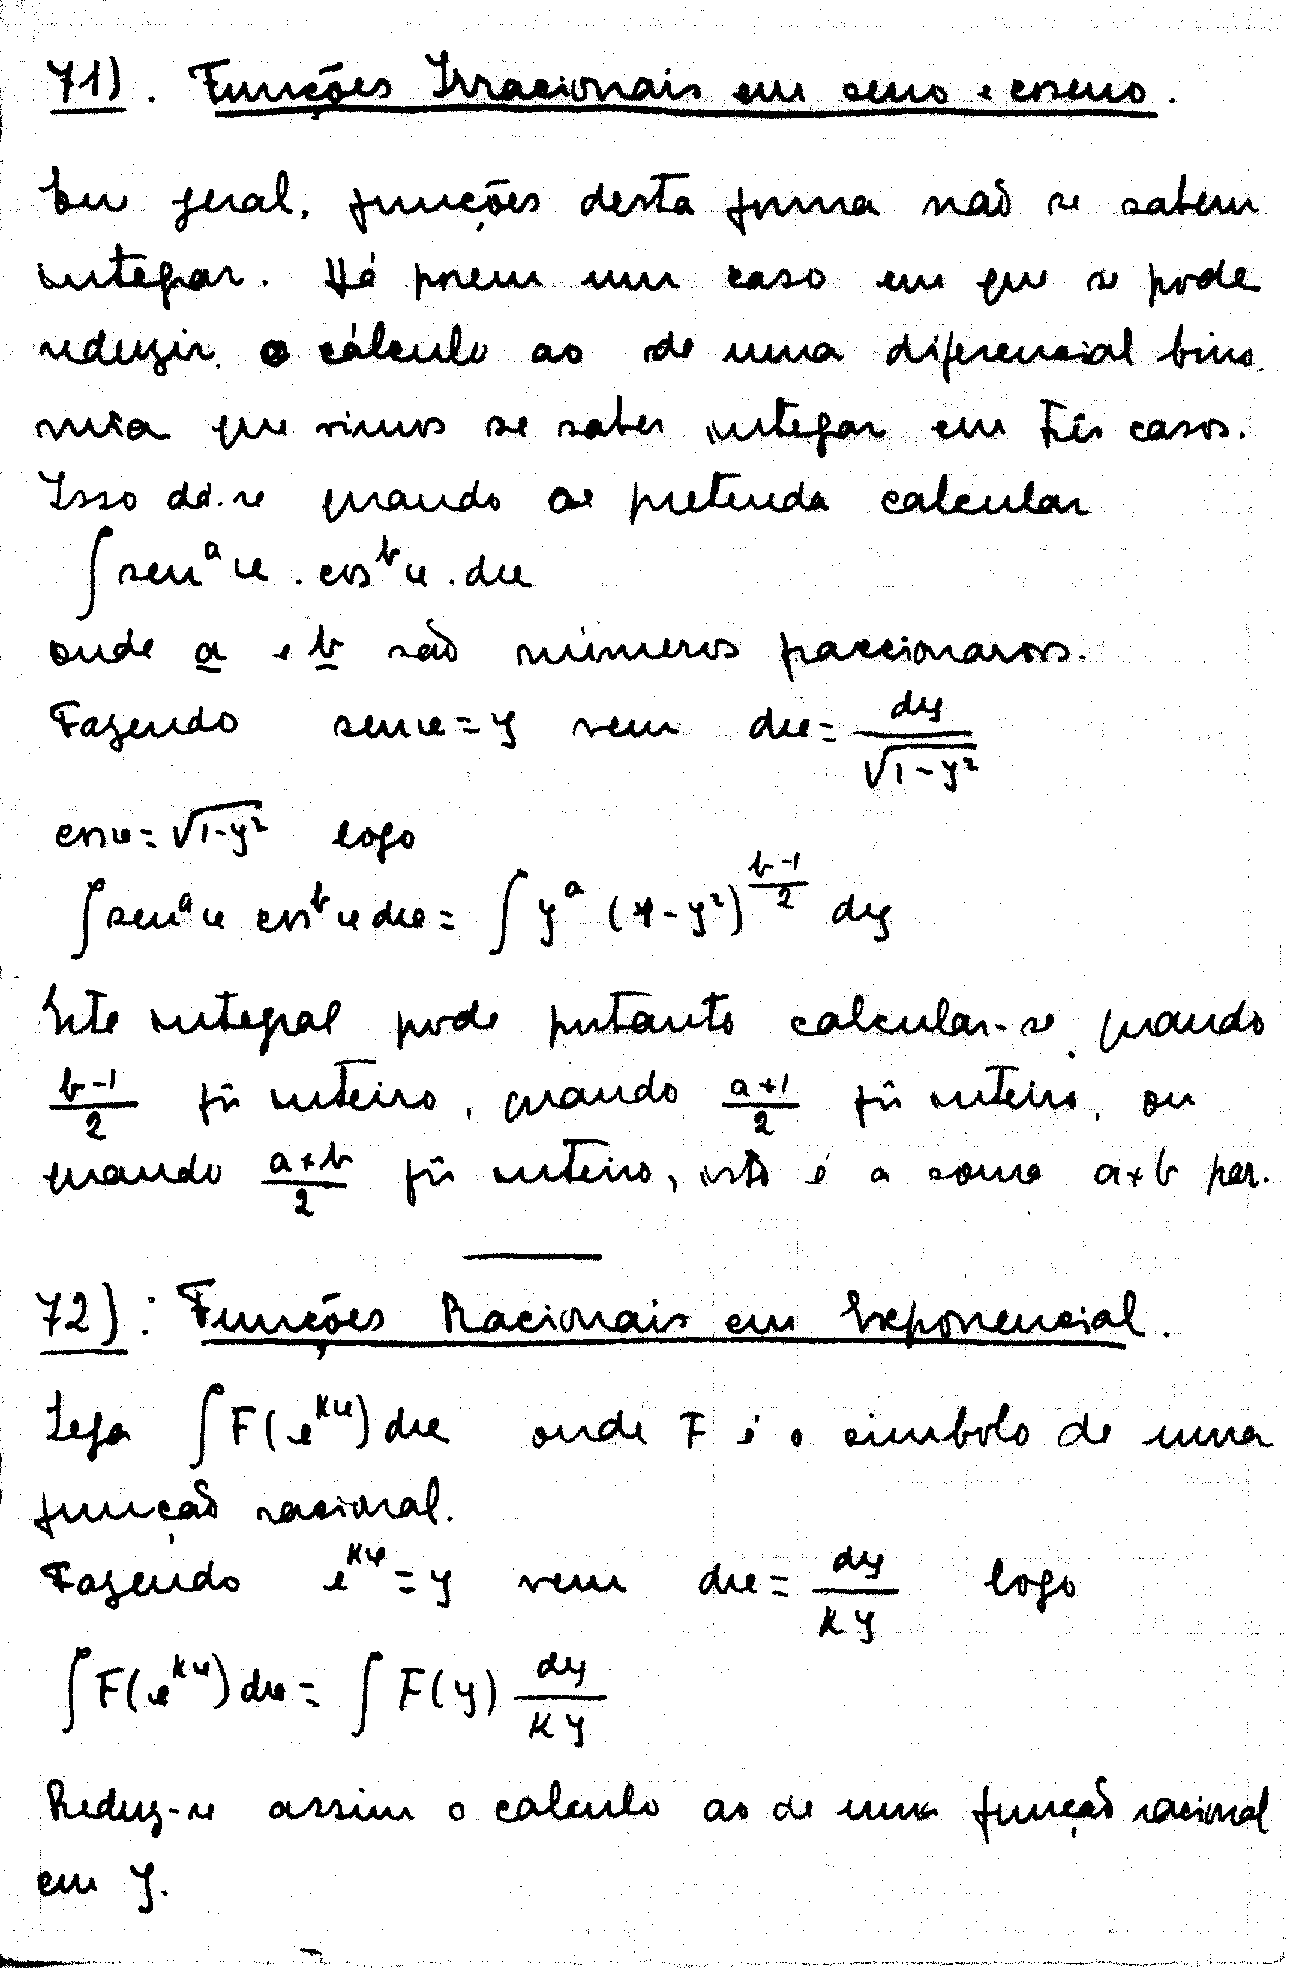 71). Funções Irracionais em seno e coseno.
Em geral, funções desta forma não se sabem
integrar. Há porem um caso em que se pode
reduzir o cálculo ao de uma diferencial binó
mia que vimos se saber integar em três casos.
Isso dá-se quando se pretenda calcular
∫ senᵃ u . cosᵇ u . du
onde a e b são números fraccionarios.
Fazendo sen u = y vem du = dy/√(1-y²)
cos u = √(1-y²) logo
∫ senᵃ u cosᵇ u du = ∫ yᵃ (1-y²)^((b-1)/2) dy
Este integral pode portanto calcular-se quando
(b-1)/2 fôr inteiro, quando (a+1)/2 fôr inteiro, ou
quando (a+b)/2 fôr inteiro, isto é a soma a+b par.
72). Funções Racionais em Exponencial.
Seja ∫ F(e^(Ku)) du onde F é o simbolo de uma
função racional.
Fazendo e^(Ku) = y vem du = dy/(Ky) logo
∫ F(e^(Ku)) du = ∫ F(y) dy/(Ky)
Reduz-se assim o calculo ao de uma função racional
em y.